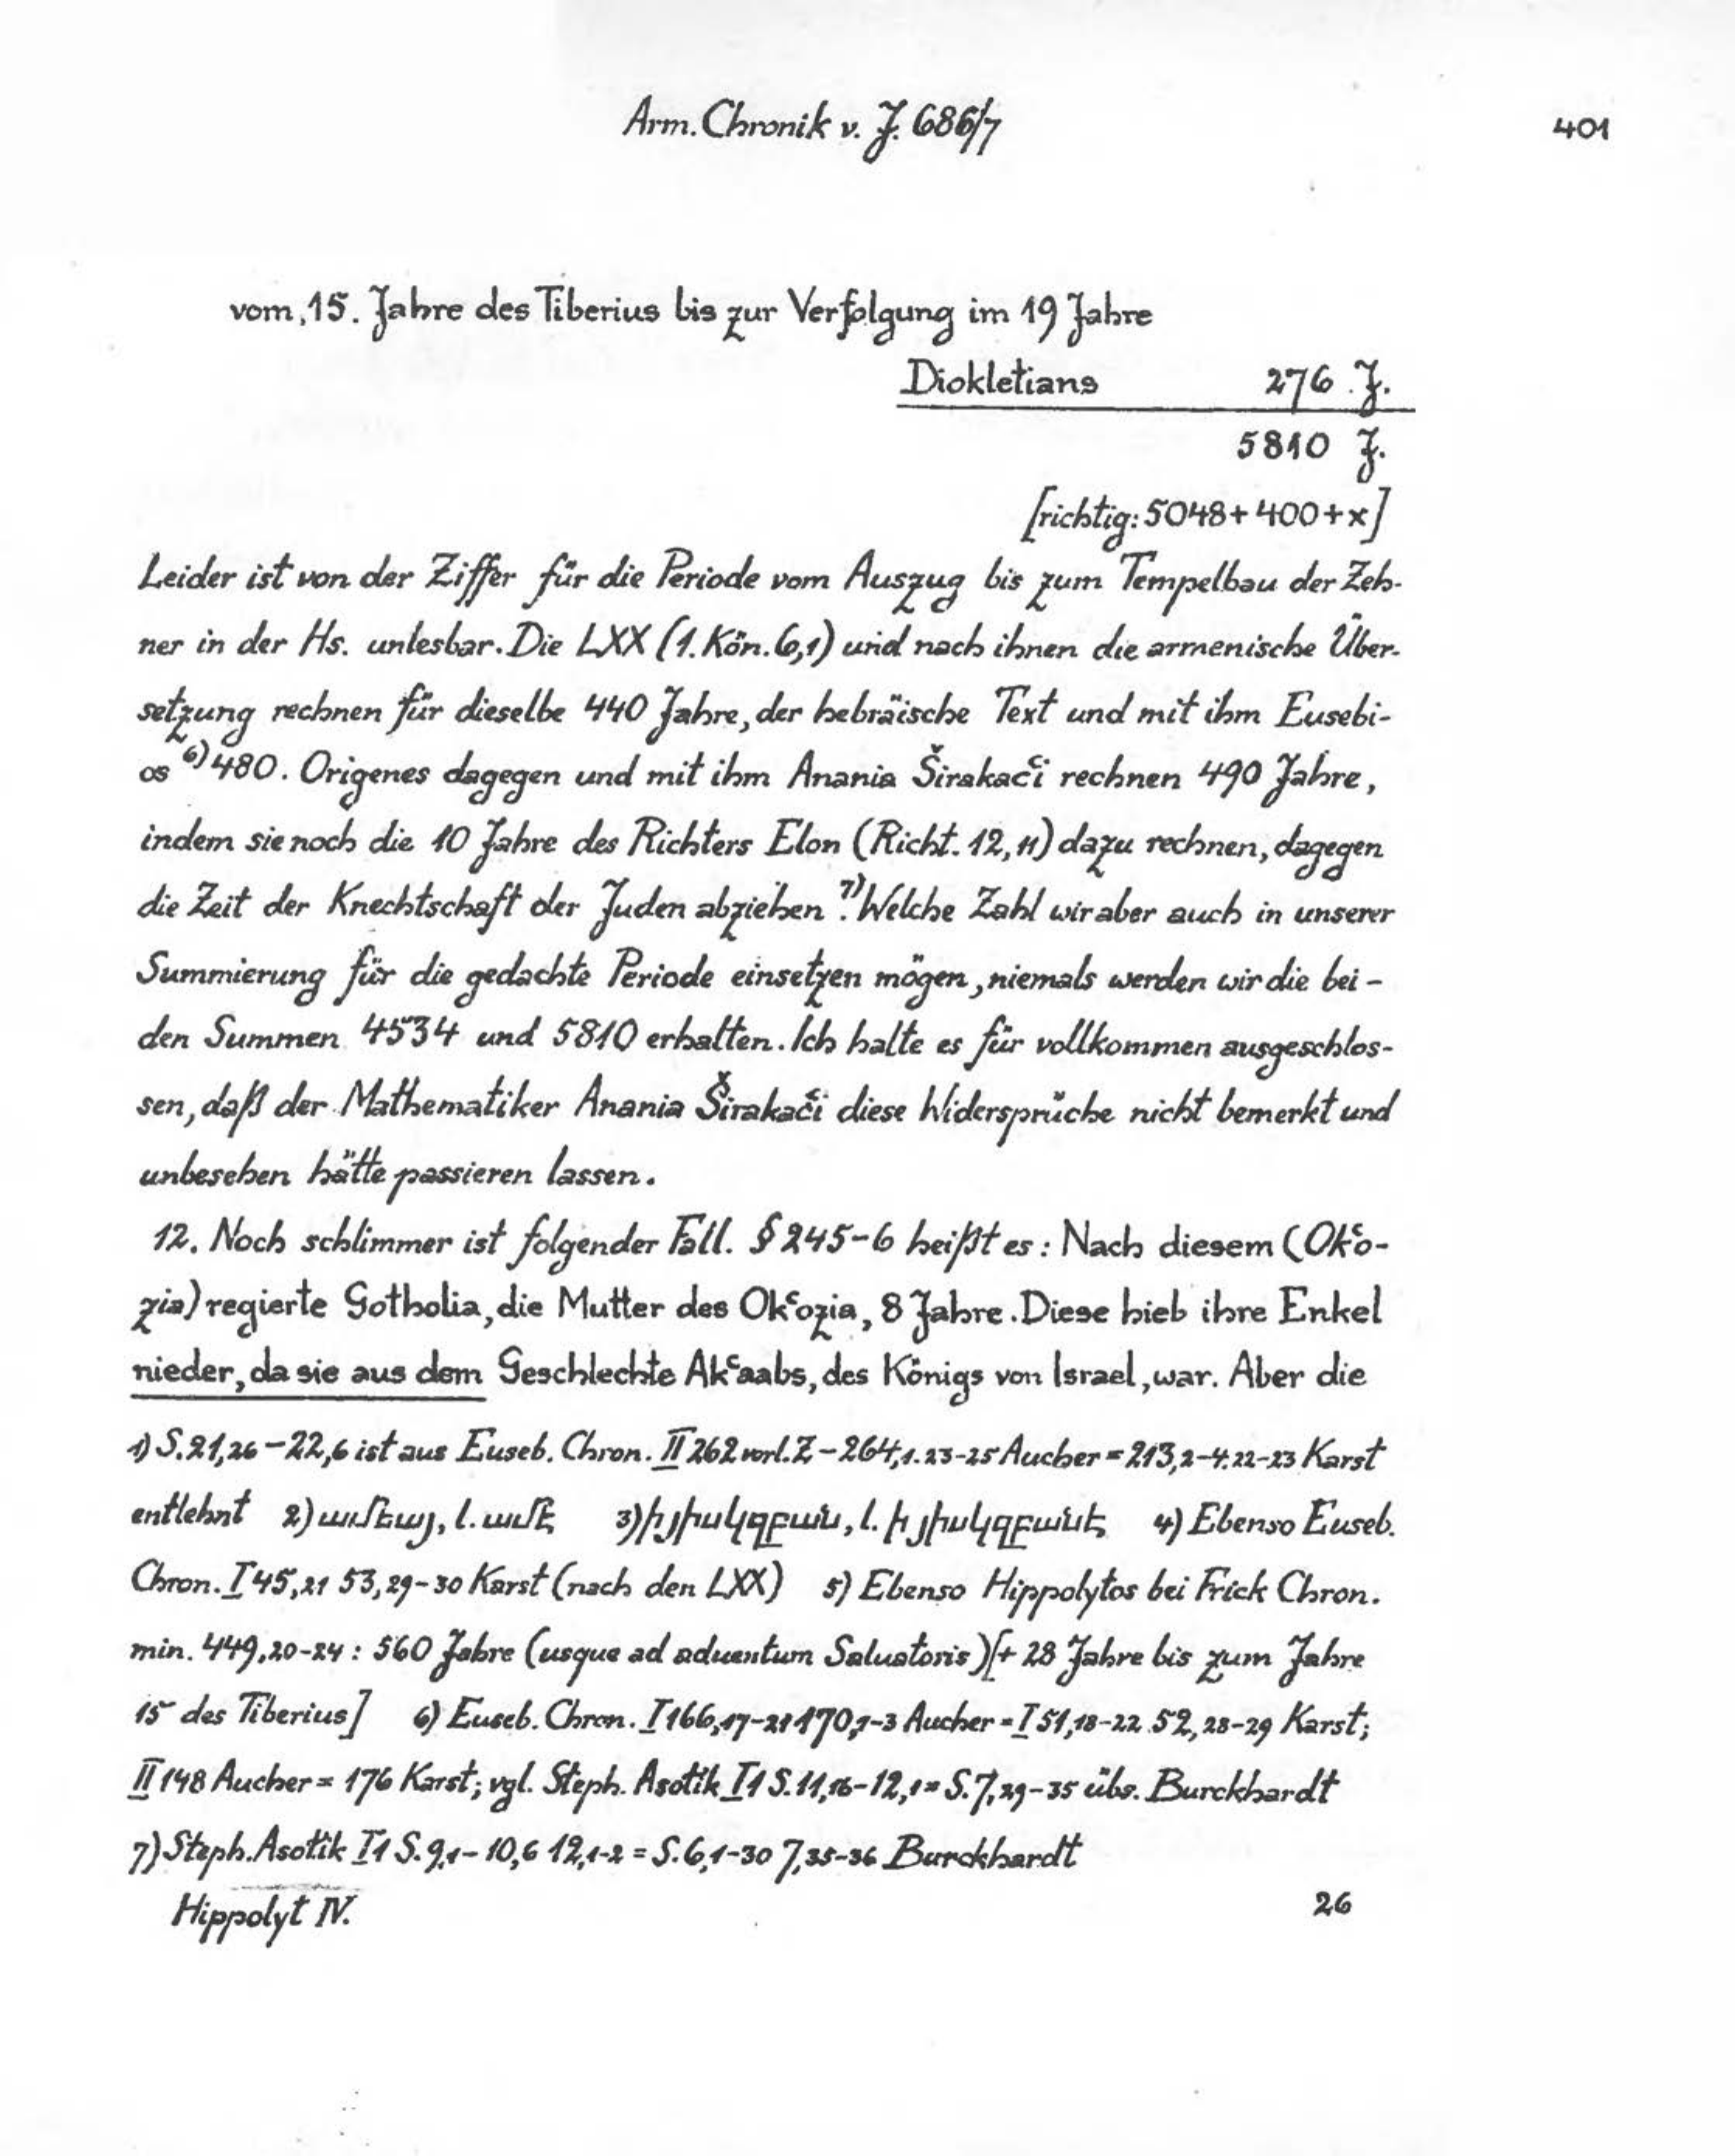 Arm. Chronik v. J. 686/7 401
vom 15. Jahre des Tiberius bis zur Verfolgung im 19 Jahre
Diokletians 276 J.
5810 J.
[richtig: 5048 + 400 + x]
Leider ist von der Ziffer für die Periode vom Auszug bis zum Tempelbau der Zeh-
ner in der Hs. unlesbar. Die LXX (1. Kön. 6,1) und nach ihnen die armenische Über-
setzung rechnen für dieselbe 440 Jahre, der hebräische Text und mit ihm Eusebi-
os 6) 480. Origenes dagegen und mit ihm Anania Širakac̔i rechnen 490 Jahre,
indem sie noch die 10 Jahre des Richters Elon (Richt. 12, 11) dazu rechnen, dagegen
die Zeit der Knechtschaft der Juden abziehen 7). Welche Zahl wir aber auch in unserer
Summierung für die gedachte Periode einsetzen mögen, niemals werden wir die bei-
den Summen 4534 und 5810 erhalten. Ich halte es für vollkommen ausgeschlos-
sen, daß der Mathematiker Anania Širakac̔i diese Widersprüche nicht bemerkt und
unbesehen hätte passieren lassen.
12. Noch schlimmer ist folgender Fall. § 245-6 heißt es: Nach diesem (Ok̔o-
zia) regierte Gotholia, die Mutter des Ok̔ozia, 8 Jahre. Diese hieb ihre Enkel
nieder, da sie aus dem Geschlechte Ak̔aabs, des Königs von Israel, war. Aber die
1) S. 21,26-22,6 ist aus Euseb. Chron. II 262 vorl. Z - 264,1. 23-25 Aucher = 213,2-4. 22-23 Karst
entlehnt 2) ամեայ, l. ամէ 3) իյիսկզբան, l. ի յիսկզբանէ 4) Ebenso Euseb.
Chron. I 45,21 53,29-30 Karst (nach den LXX) 5) Ebenso Hippolytos bei Frick Chron.
min. 449,20-24: 560 Jahre (usque ad aduentum Saluatoris) [+ 28 Jahre bis zum Jahre
15 des Tiberius] 6) Euseb. Chron. I 166,17-21 170,1-3 Aucher = I 51,18-22 52,28-29 Karst;
II 148 Aucher = 176 Karst; vgl. Steph. Asotik I1 S. 11,16-12,1 = S. 7,29-35 übs. Burckhardt
7) Steph. Asotik I1 S. 9,1-10,6 12,1-2 = S. 6,1-30 7,35-36 Burckhardt
Hippolyt IV. 26